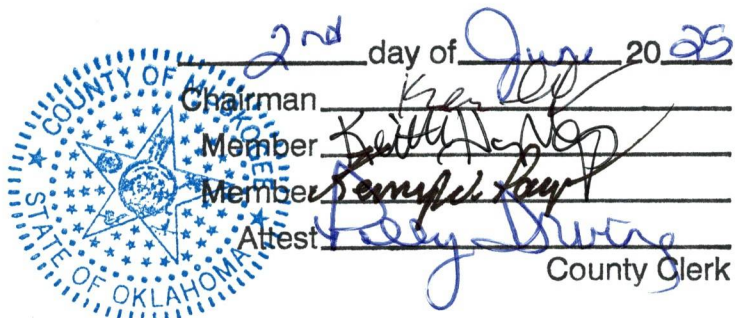 2nd day of June 2025
Chairman
Member Keith
Member
Attest Polly Irving
County Clerk
COUNTY OF MUSKOGEE
STATE OF OKLAHOMA